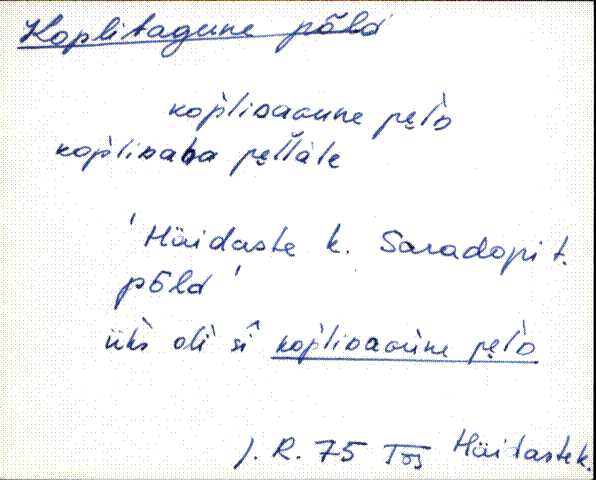 Koplitagune põld
koplᴅaɢune pe̮lᴅ
koplᴅaha pe̮llale
'Häidaste k. Saradopi t.
põld'
üks oli sī koplᴅaɢune pe̮lᴅ
J. R. 75 Tõs Häidaste k.